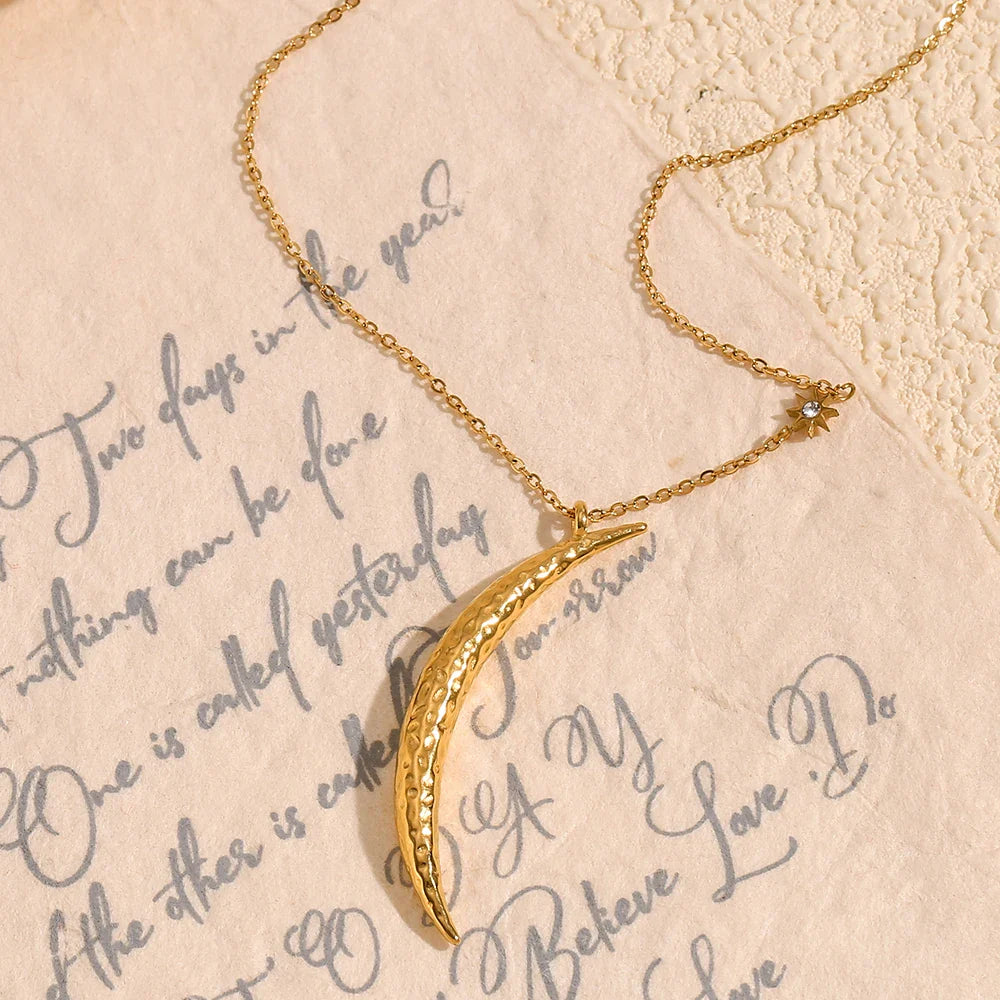 Two days in the year
nothing can be done
One is called yesterday
the other is called Tomorrow
TODAY
Love Do
Believe